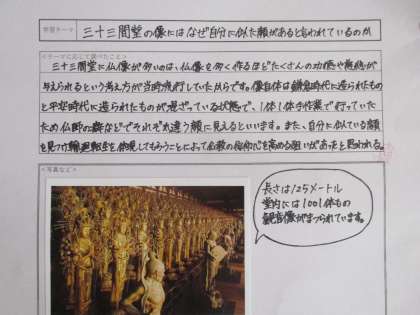 学習テーマ 三十三間堂の像にはなぜ自分に似た顔があると言われているのか
<テーマに応じて調べたこと>
三十三間堂に仏像が多いのは、仏像を多く作るほどたくさんの功徳や
与えられるという考え方が当時流行していたからです。像自体は鎌倉時代に造られたもの
と平安時代に造られたものが混ざっている状態で、1体1体手作業で行っていた
ため仏師の癖などでそれぞれ違う顔に見えるといいます。また、自分に似ている顔
を見つけ輪廻転生を体現してもらうことによって仏教の信仰心を高める狙いがあったと思われる。
<写真など>
長さは125メートル
堂内には1001体もの
観音像がまつられています。